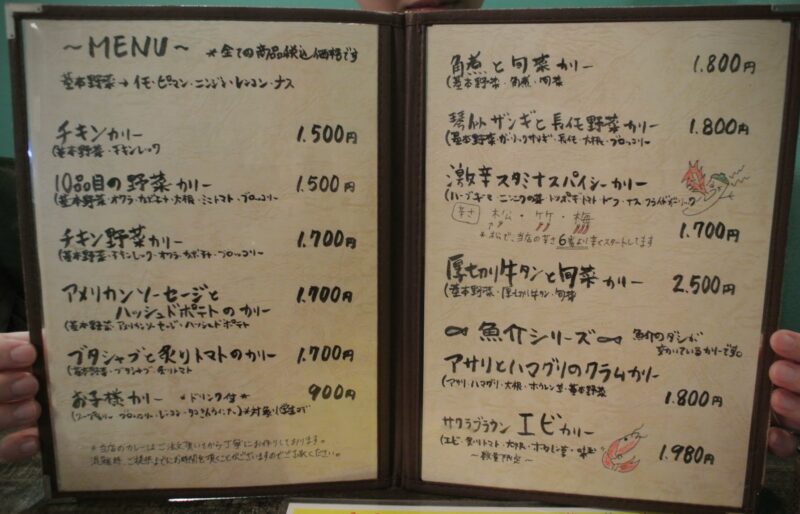 ~MENU~ *全ての商品税込価格です
基本野菜→イモ・ピーマン・ニンジン・レンコン・ナス
チキンカリー 1.500円
(基本野菜・チキンレッグ
10品目の野菜カリー 1.500円
(基本野菜・オクラ・カボチャ・大根・ミニトマト・ブロッコリー
チキン野菜カリー 1.700円
(基本野菜・チキンレッグ・オクラ・カボチャ・ブロッコリー
アメリカンソーセージと
ハッシュドポテトのカリー 1.700円
(基本野菜・アメリカンソーセージ・ハッシュドポテト
ブタシャブと炙りトマトのカリー 1.700円
(基本野菜・ブタシャブ・炙りトマト
お子様カリー *ドリンク付* 900円
ブロッコリー・レンコン *対象小学生まで
*当店のカレーはご注文頂いてから丁寧にお作りしております。
混雑時、ご提供までにお時間を頂くことがございますのでご了承ください。
角煮と旬菜カリー 1.800円
(基本野菜・角煮・旬菜
ザンギと長イモ野菜カリー 1.800円
(基本野菜・ガーリックザンギ・長イモ・大根・ブロッコリー
激辛スタミナスパイシーカリー
辛さ 松・竹・梅
*松で、当店の辛さ6番より辛くスタートしてます
1.700円
厚切り牛タンと旬菜カリー 2.500円
(基本野菜・厚切り牛タン・旬菜
魚介シリーズ 魚介のダシが
アサリとハマグリのクラムカリー
(アサリ・ハマグリ・大根・ホウレン草・基本野菜
1.800円
サクラブラウンエビカリー
(エビ・炙りトマト・大根・ホウレン草
~数量限定~ 1.980円